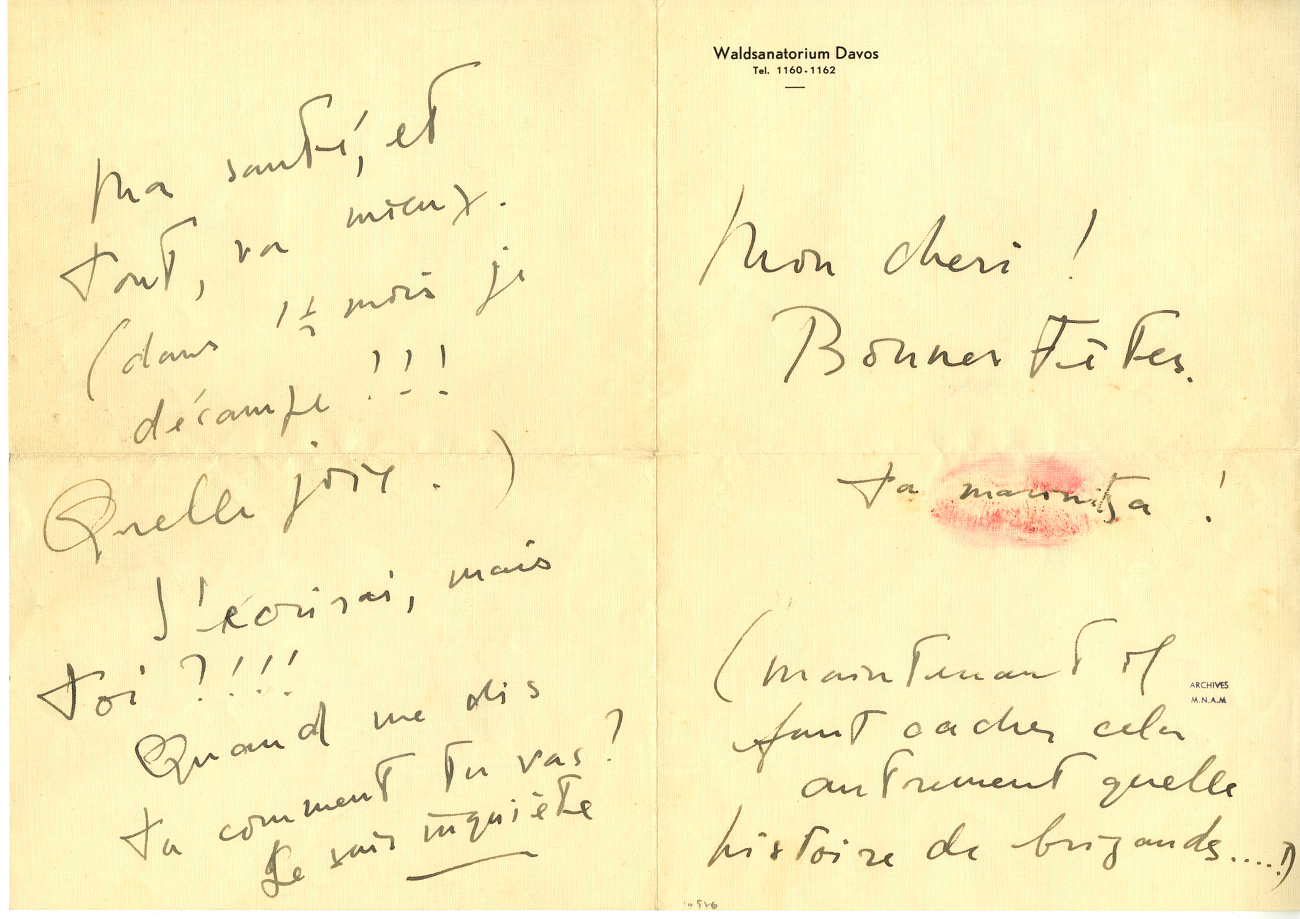 Waldsanatorium Davos
Tel. 1160-1162
Mon cheri !
Bonnes Fêtes.
ta maronitza !
(maintenant il
faut cacher cela
autrement quelle
histoire de brigands....!)
ARCHIVES
M.N.A.M
Ma santé, et
tout, va mieux.
(dans 1 1/2 mois je
décampe !!!
Quelle joie. )
J'écrirai, mais
toi ?!!!
Quand me dis
tu comment tu vas ?
Je suis inquiète